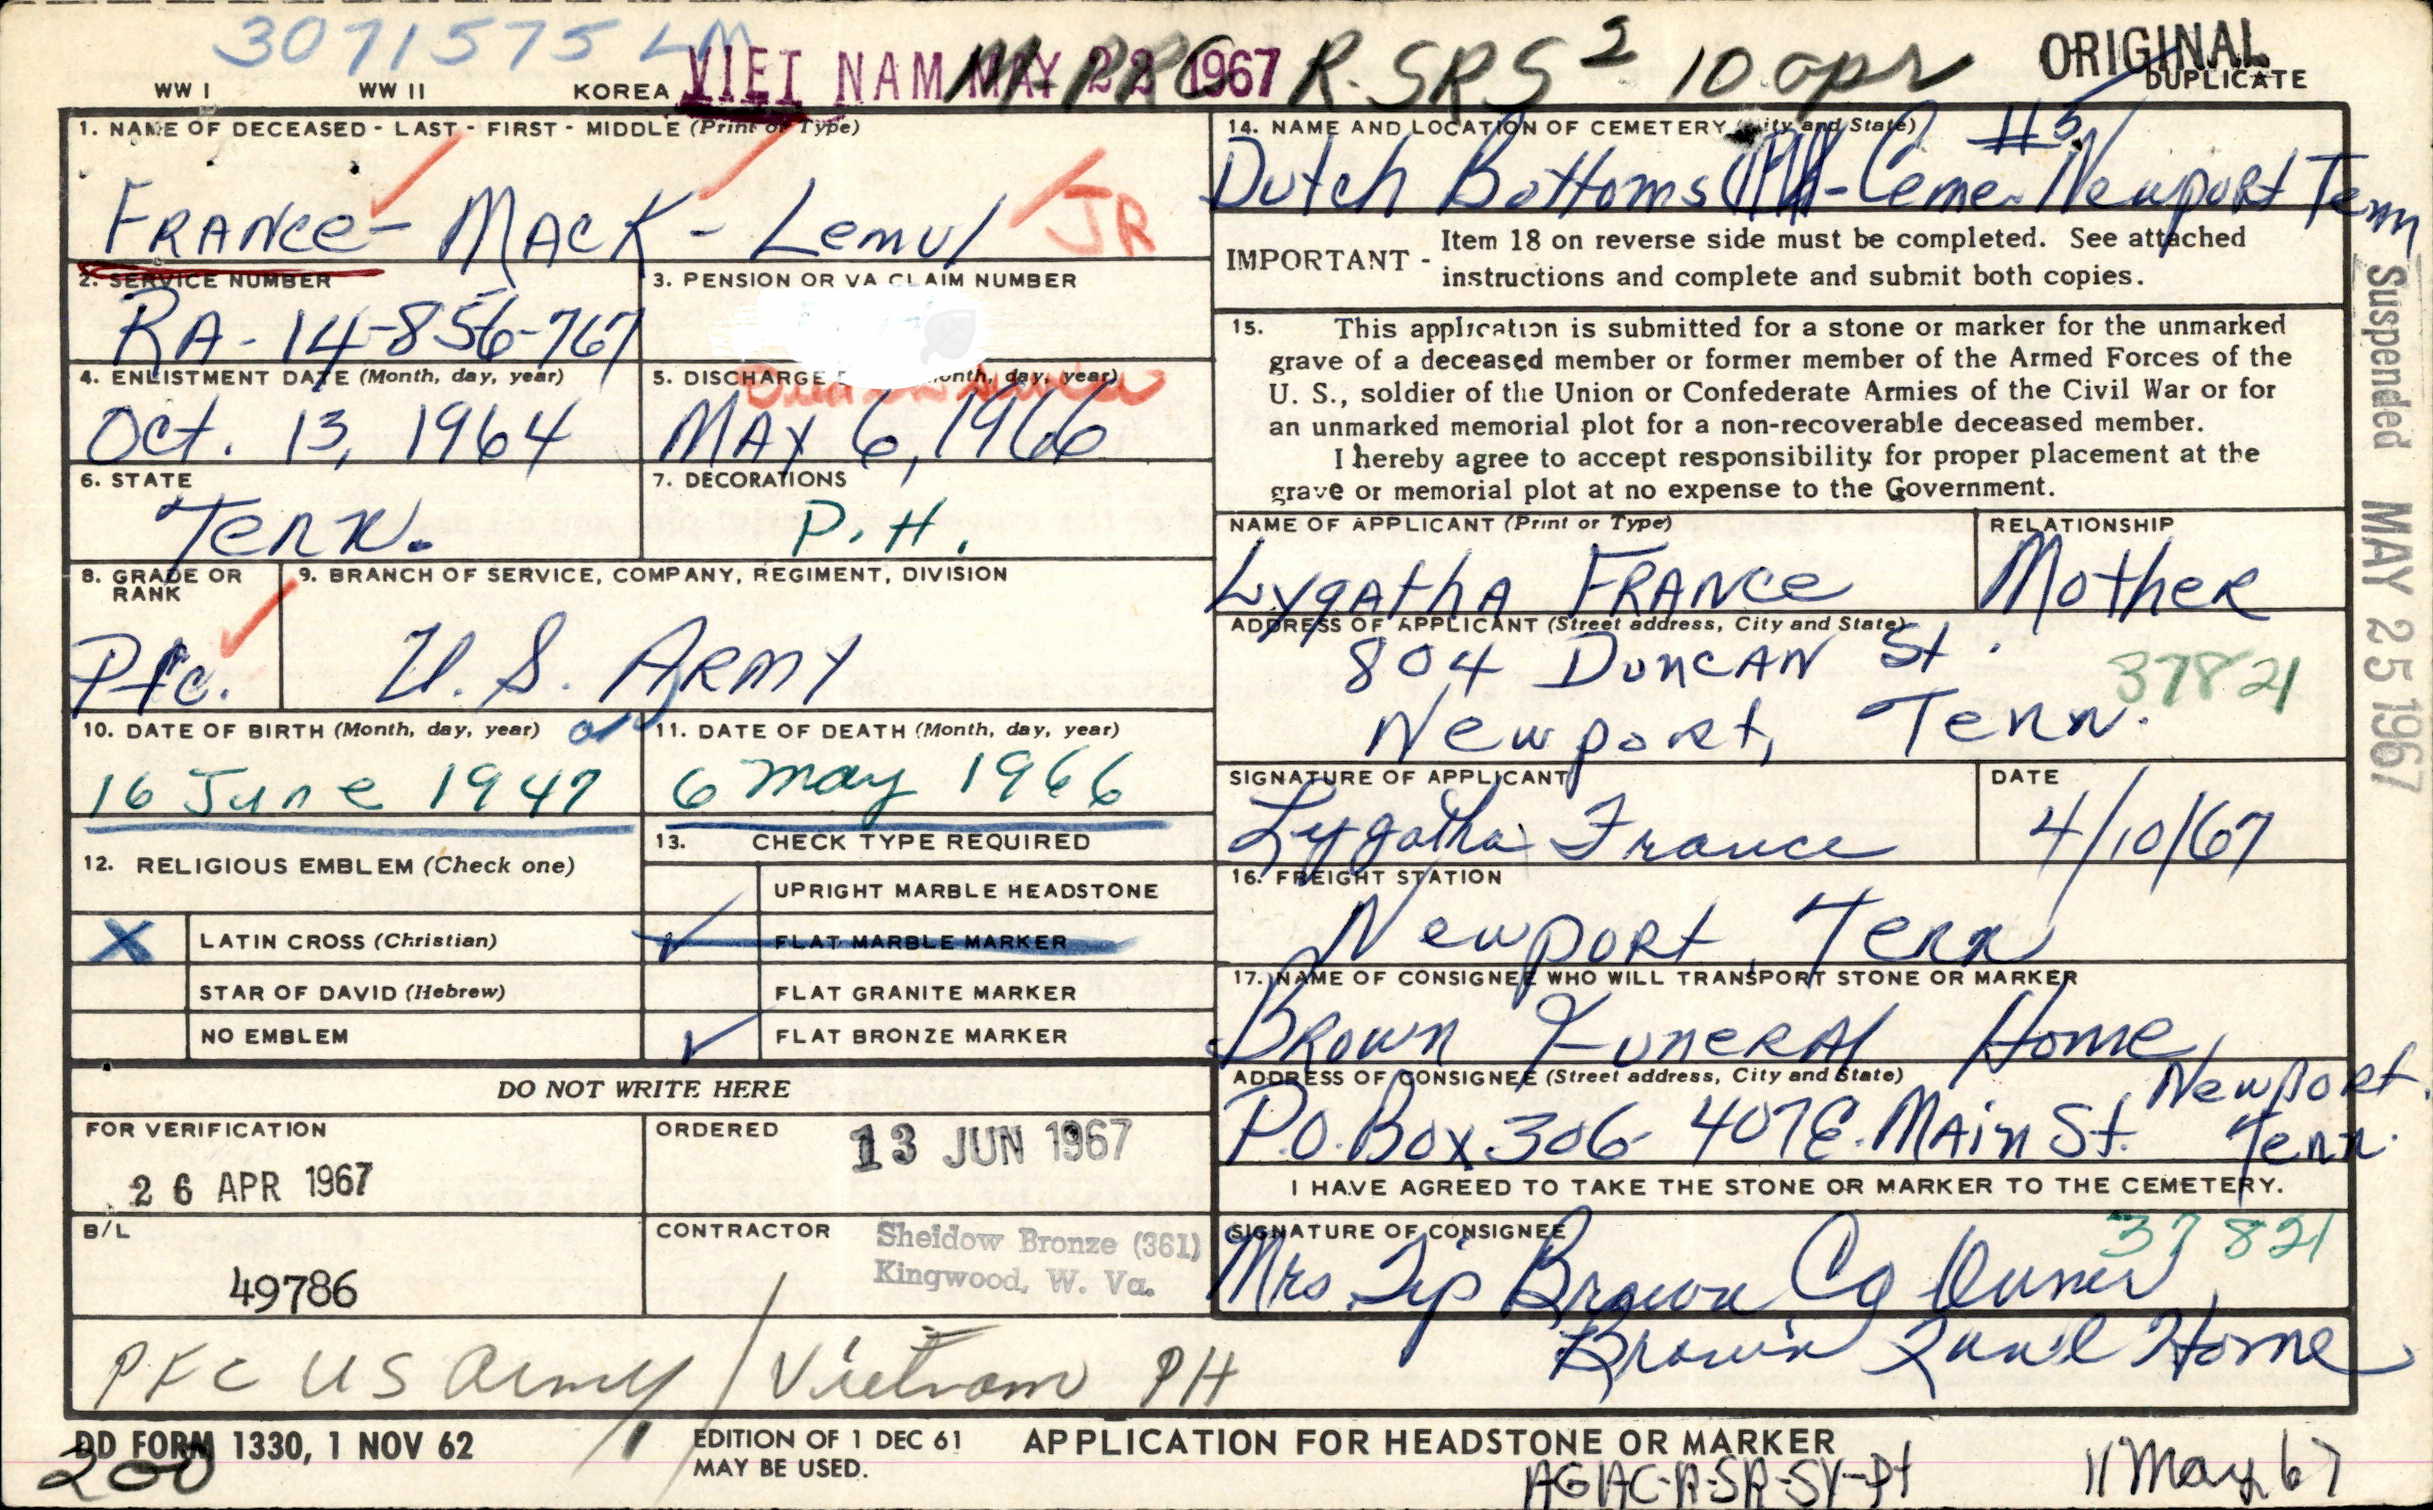 3071575 LM
WW I WW II KOREA VIET NAM MAY 22 1967 R-SRS² 10 apr ORIGINAL
DUPLICATE
1. NAME OF DECEASED - LAST - FIRST - MIDDLE (Print or Type)
FRANCE - MACK - Lemul JR
2. SERVICE NUMBER
RA-14-856-767
3. PENSION OR VA CLAIM NUMBER
4. ENLISTMENT DATE (Month, day, year)
Oct. 13, 1964
5. DISCHARGE (Month, day, year)
MAY 6, 1966
6. STATE
Tenn.
7. DECORATIONS
P.H.
8. GRADE OR
RANK
Pfc.
9. BRANCH OF SERVICE, COMPANY, REGIMENT, DIVISION
U. S. ARMY
10. DATE OF BIRTH (Month, day, year)
16 June 1947
11. DATE OF DEATH (Month, day, year)
6 May 1966
12. RELIGIOUS EMBLEM (Check one)
X LATIN CROSS (Christian)
STAR OF DAVID (Hebrew)
NO EMBLEM
13. CHECK TYPE REQUIRED
UPRIGHT MARBLE HEADSTONE
✓ FLAT MARBLE MARKER
FLAT GRANITE MARKER
✓ FLAT BRONZE MARKER
DO NOT WRITE HERE
FOR VERIFICATION
26 APR 1967
ORDERED
13 JUN 1967
B/L
49786
CONTRACTOR
Sheidow Bronze (361)
Kingwood, W. Va.
PFC US Army / Vietnam PH
14. NAME AND LOCATION OF CEMETERY (City and State) #5
Dutch Bottoms Ceme. Newport Tenn
IMPORTANT - Item 18 on reverse side must be completed. See attached
instructions and complete and submit both copies.
15. This application is submitted for a stone or marker for the unmarked
grave of a deceased member or former member of the Armed Forces of the
U. S., soldier of the Union or Confederate Armies of the Civil War or for
an unmarked memorial plot for a non-recoverable deceased member.
I hereby agree to accept responsibility for proper placement at the
grave or memorial plot at no expense to the Government.
NAME OF APPLICANT (Print or Type)
Lygatha FRANCE
RELATIONSHIP
Mother
ADDRESS OF APPLICANT (Street address, City and State)
804 DUNCAN St.
Newport, Tenn. 37821
SIGNATURE OF APPLICANT
Lygatha France
DATE
4/10/67
16. FREIGHT STATION
Newport, Tenn
17. NAME OF CONSIGNEE WHO WILL TRANSPORT STONE OR MARKER
BROWN FUNERAL Home
ADDRESS OF CONSIGNEE (Street address, City and State)
P.O. Box 306- 407 E. MAIN St. Newport, Tenn.
I HAVE AGREED TO TAKE THE STONE OR MARKER TO THE CEMETERY.
SIGNATURE OF CONSIGNEE 37821
Mrs Tip Brown Co Owner,
Brown Fun'l Home
Suspended MAY 25 1967
DD FORM 1330, 1 NOV 62
200
EDITION OF 1 DEC 61
MAY BE USED.
APPLICATION FOR HEADSTONE OR MARKER
11 May 67